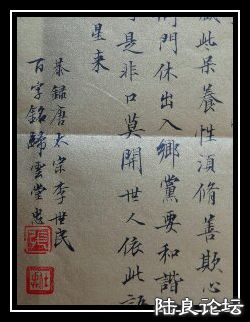 此呆養性須脩善欺心
衙門休出入鄉黨要和諧
是非口莫開世人依此語
星来
恭録唐太宗李世民
百字銘歸雲堂忠
張
陆良论坛